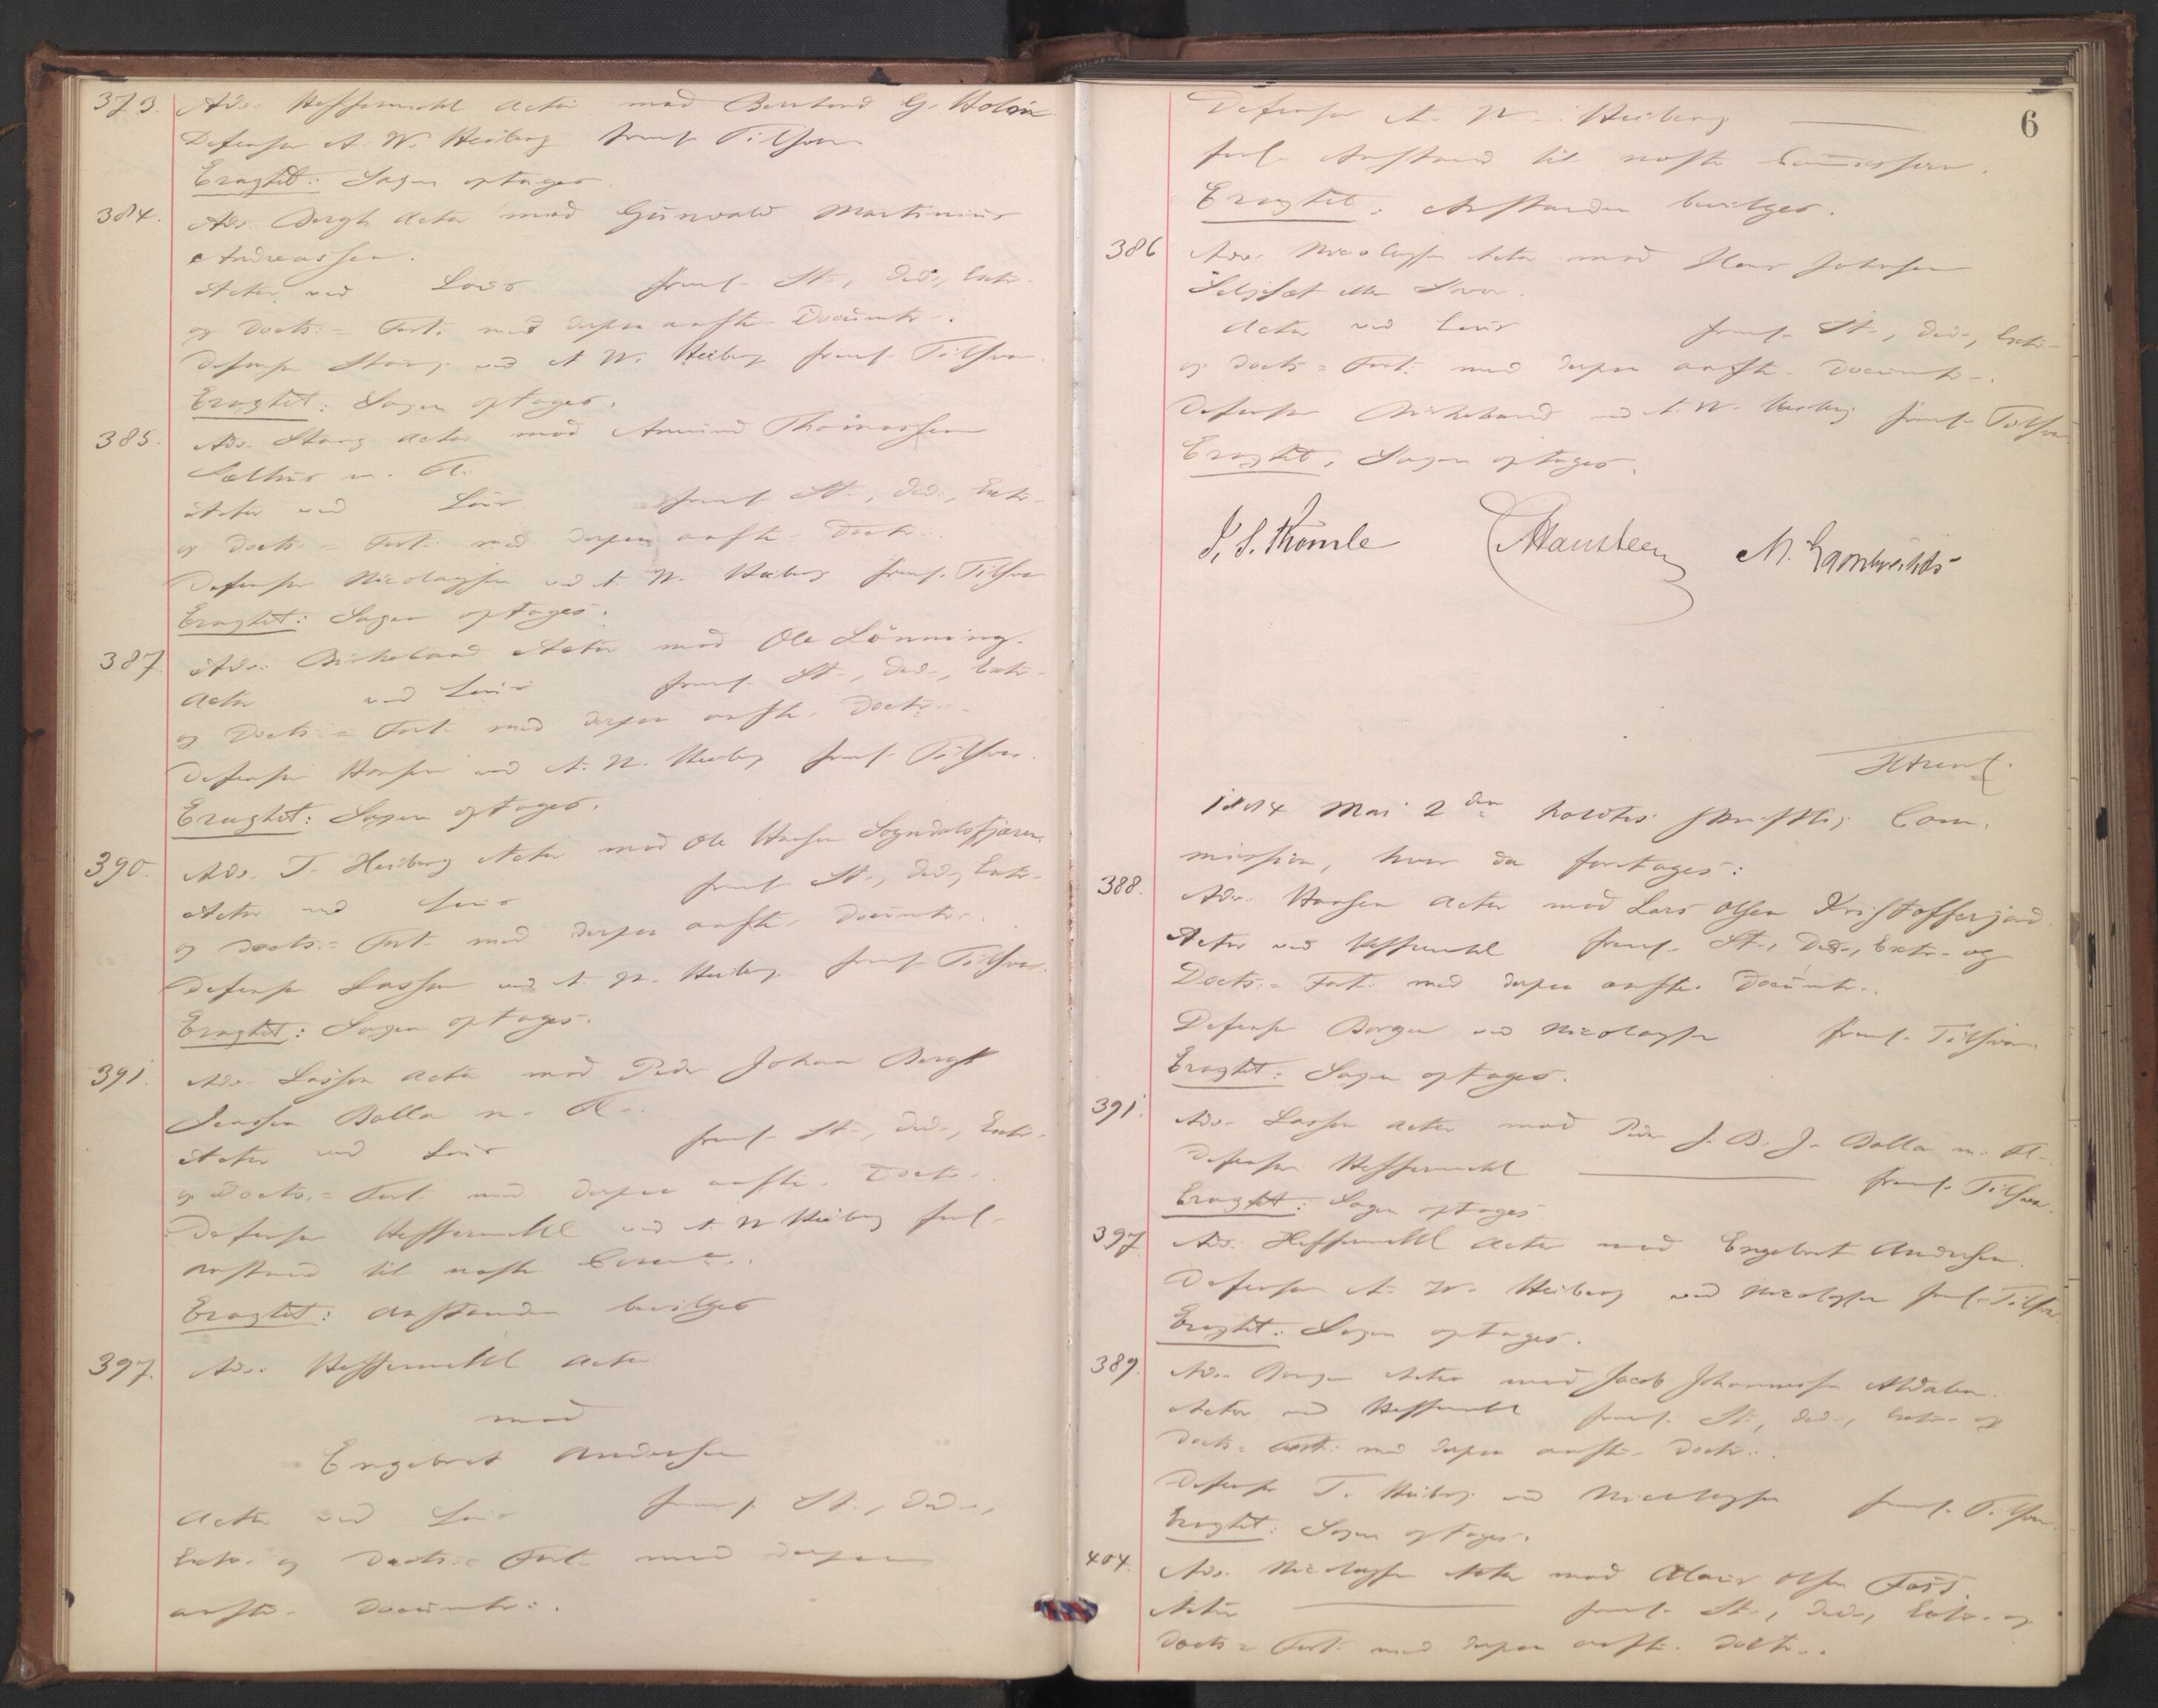 373. Adv. Heffermehl Actor mod Berntord G. Holm
Defensor A. W. Heiberg freml. Tilsvar
Eragtet: Sagen optages.
384. Adv. Bergh Actor mod Gunvald Martinius
Andreassen.
Actor ved Lous freml. St., Ded., Extr.
og Docts.= Fort. med derpaa anfte. Documtr.
Defensor Stang ved A. W. Heiberg freml. Tilsvar.
Eragtet: Sagen optages.
385. Adv. Stang Actor mod Amund Thomassen
Sælhus m. Fl.
Actor ved Lous freml. St., Ded., Extr.
og Docts.= Fort. med derpaa anfte. Doctr.
Defensor Nicolaysen ved A. W. Heiberg freml. Tilsvar
Eragtet: Sagen optages.
387 Adv. Birkeland Actor mod Ole Lönning.
Actor ved Lous freml. St., Ded., Extr.
og Docts.= Fort. med derpaa anfte. Doctr.
Defensor Hansen ved A. W. Heiberg freml. Tilsvar.
Eragtet: Sagen optages.
390. Adv. T. Heiberg Actor mod Ole Hansen Sogndalsfjæren.
Actor ved Lous freml. St., Ded., Extr.
og Docts.= Fort. med derpaa anfte. Documtr.
Defensor Lassen ved A. W. Heiberg freml. Tilsvar.
Eragtet: Sagen optages.
391. Adv. Lassen Actor mod Peder Johan Bergh
Jenssen Balla m. Fl.
Actor ved Lous freml. St., Ded., Extr.
og Docts.= Fort. med derpaa anfte. Doctr.
Defensor Heffermehl ved A. W. Heiberg forl.
Anstand til næste Comm.
Eragtet: Anstanden bevilges
397. Adv. Heffermehl Actor
mod
Engebret Andersen
Actor ved Lous freml. St., Ded.,
Extr. og Docts.= Fort. med derpaa
anfte. Documtr.
6
Defensor A. W. Heiberg
forl. Anstand til næste Commission.
Eragtet: Anstanden bevilges.
386 Adv. Nicolaysen Actor mod Hans Johnsen
Actor ved Lous freml. St., Ded., Extr.
og Docts.= Fort. med derpaa anfte. Documtr.
Defensor Birkeland ved A. W. Heiberg freml. Tilsvar
Eragtet: Sagen optages.
J. S. Thomle AHansteen M. Lambrechts
1884 Mai 2den holdtes skriftlig Com-
mission, hvor da foretages:
388. Adv. Hansen Actor mod Lars Olsen Kristofferjord.
Actor ved Heffermehl freml. St., Ded., Extr. og
Docts.= Fort. med derpaa anfte. Documtr.
Defensor Borgen ved Nicolaysen freml. Tilsvar.
Eragtet: Sagen optages.
391. Adv. Lassen Actor mod Peder J. B. J. Balla m. Fl.
Defensor Heffermehl freml. Tilsvar.
Eragtet: Sagen optages
397 Adv. Heffermehl Actor mod Engebret Andersen.
Defensor A. W. Heiberg ved Nicolaysen freml. Tilsvar.
Eragtet: Sagen optages.
389. Adv. Borgen Actor mod Jacob Johannesen Aldalen.
Actor ved Heffermehl freml. St., Ded., Extr. og
Docts.= Fort. med derpaa anfte. Doctr.
Defensor T. Heiberg ved Nicolaysen freml. Tilsvar
Eragtet: Sagen optages.
404. Adv. Nicolaysen Actor mod Olaus Olsen Foss.
Actor freml. St., Ded., Extr. og
Docts.= Fort. med derpaa anfte. Doctr.